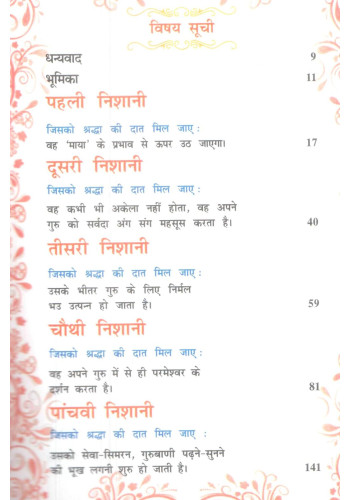 विषय सूची
धन्यवाद 9
भूमिका 11
पहली निशानी
जिसको श्रद्धा की दात मिल जाए :
वह 'माया' के प्रभाव से ऊपर उठ जाएगा। 17
दूसरी निशानी
जिसको श्रद्धा की दात मिल जाए :
वह कभी भी अकेला नहीं होता, वह अपने
गुरु को सर्वदा अंग संग महसूस करता है। 40
तीसरी निशानी
जिसको श्रद्धा की दात मिल जाए :
उसके भीतर गुरु के लिए निर्मल
भउ उत्पन्न हो जाता है। 59
चौथी निशानी
जिसको श्रद्धा की दात मिल जाए :
वह अपने गुरु में से ही परमेश्वर के
दर्शन करता है। 81
पांचवी निशानी
जिसको श्रद्धा की दात मिल जाए :
उसको सेवा-सिमरन, गुरुबाणी पढ़ने-सुनने
की भूख लगनी शुरु हो जाती है। 141